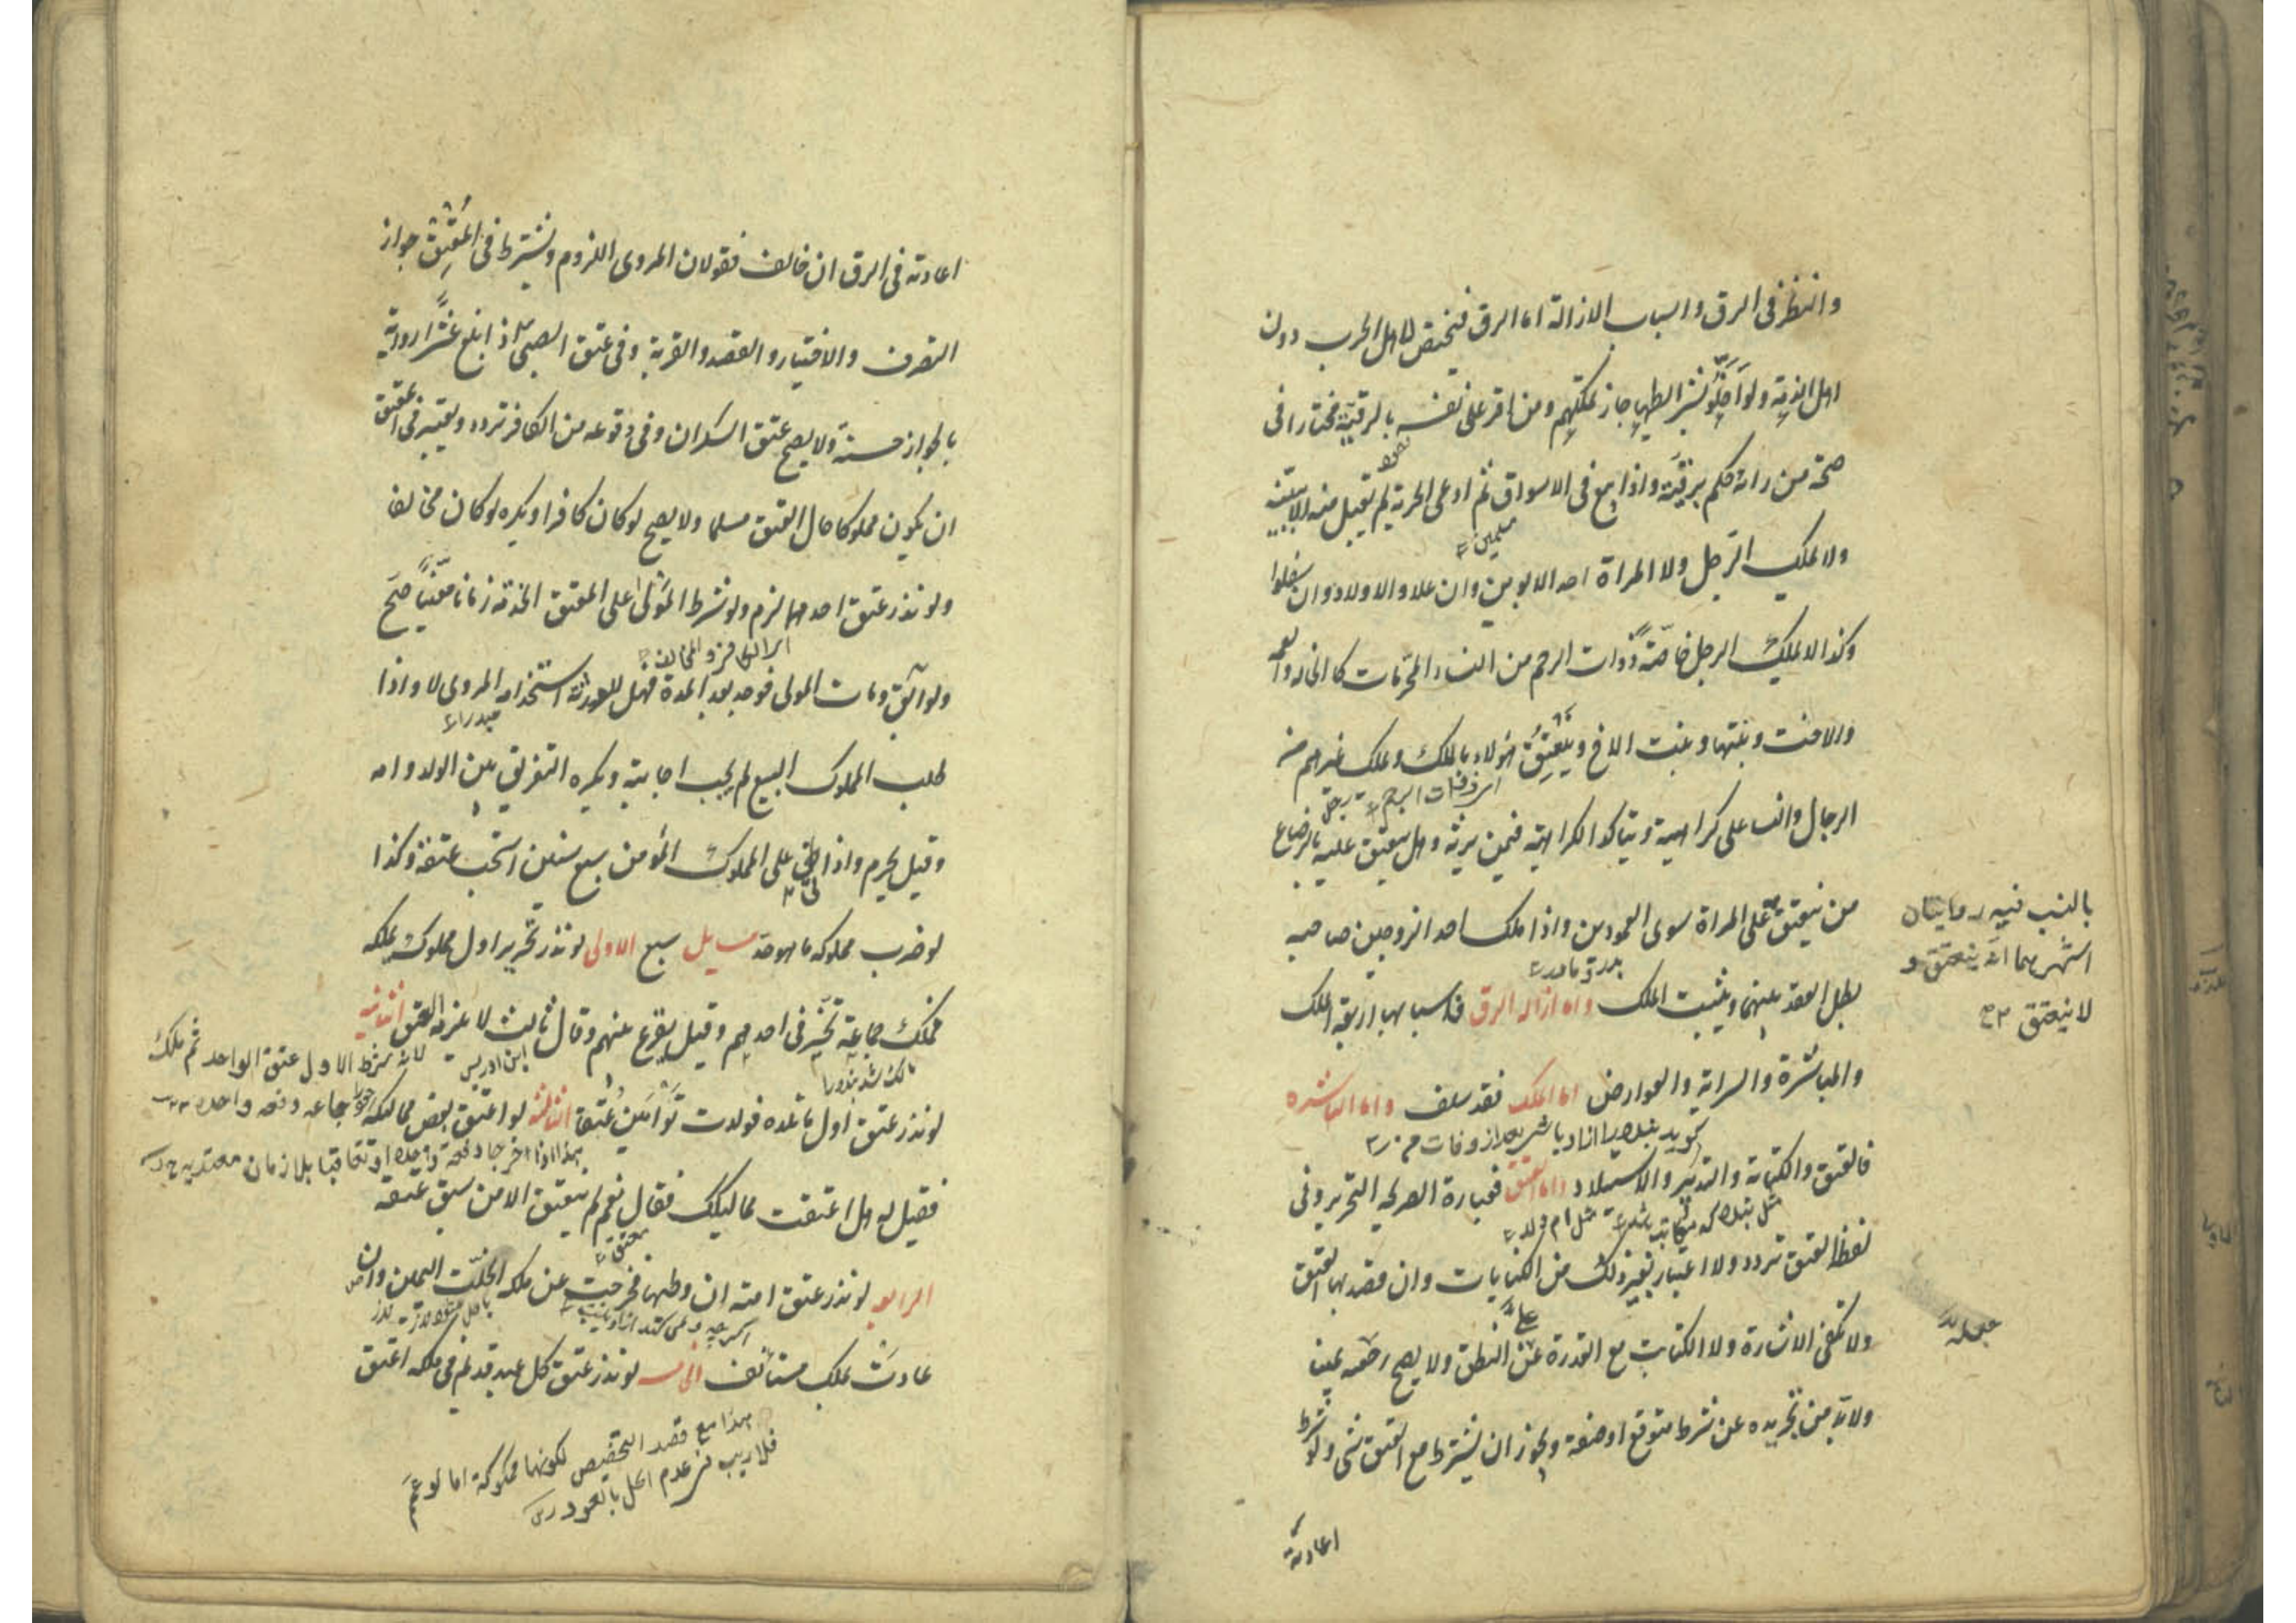 والنظر في الرق واسباب الازالة اما الرق فيختص باهل الحرب دون
اهل الذمة ولو اخلوا بشرايطها جاز تملكهم ومن اقر على نفسه بالرقية مختارا في
صحة من راية حكم برقيته واذا بيع في الاسواق ثم ادعى الحرية لم تقبل منه الا ببينة
مسلمين
ولا يملك الرجل ولا المراة احد الابوين وان علا والاولاد وان سفلوا
وكذا لا يملك الرجل خاصة ذوات الرحم من النساء المحرمات كالخالة والعمة
والاخت وبنتها وبنت الاخ وينعتق هؤلاء بالملك ويملك غيرهم من
الرجال والنسا على كراهية ويتاكد الكراهية فيمن يرثه وهل ينعتق عليه بالرضاع
من ينعتق على المراة سوى العمودين واذا ملك احد الزوجين صاحبه
بالنسب فيه روايتان
اشهرهما انه ينعتق و
لا ينعتق
بطل العقد بينهما ويثبت الملك واما ازالة الرق فاسبابها اربعة الملك
والمباشرة والسراية والعوارض اما الملك فقد سلف واما المباشرة
فالعتق والكتابة والتدبير والاستيلاد واما العتق فعبارة الصريحة التحرير وفي
لفظ العتق تردد ولا اعتبار بغير ذلك من الكنايات وان قصد بها العتق
ولا تكفي الاشارة ولا الكتابة مع القدرة على النطق ولا يصح جعله يمينا
ولا بد من تجريده عن شرط متوقع او صفة ويجوز ان يشترط مع العتق شي ولو شرط
اعادته
اعادته في الرق ان خالف فقولان المروى اللزوم ويشترط في المعتق جواز
التصرف والاختيار والقصد والقربة وفي عتق الصبي اذا بلغ عشرا رواية
بالجواز حسنة ولا يصح عتق السكران وفي وقوعه من الكافر تردد ويعتبر في المعتق
ان يكون مملوكا حال العتق مسلما ولا يصح لو كان كافرا ويكره لو كان مخالفا
ولو نذر عتق احدهما لزم ولو شرط المولى على المعتق الخدمة زمانا معينا صح
اى الكافر والمخالف
ولو ابق ومات المولى فوجد بعد المدة فهل للورثة استخدامه المروى لا واذا
طلب المملوك البيع لم يجب اجابته ويكره التفريق بين الولد وامه
وقيل يحرم واذا اتى على المملوك المؤمن سبع سنين استحب عتقه وكذا
لو ضرب مملوكه ما هو حد مسايل سبع الاولى لو نذر تحرير اول مملوك يملكه
فملك جماعة تخير في احدهم وقيل يقرع بينهم وقال ثالث لا يلزمه العتق الثانية
ابن ادريس لانه شرط الاول عتق الواحد ثم ملك
جماعه دفعه واحده
لو نذر عتق اول ما تلده فولدت توأمين عتقا الثالثة لو اعتق بعض مماليكه
هذا اذا اخرجا دفعة واحدة او تعاقبا بلا زمان
فقيل له هل اعتقت مماليكك فقال نعم لم ينعتق الا من سبق عتقه
الرابعة لو نذر عتق امته ان وطيها فخرجت عن ملكه انحلت اليمين وان
عادت بملك مستانف الخامسة لو نذر عتق كل عبد قديم في ملكه اعتق
هذا مع قصد التخصيص لكونها مملوكة اما لو عمم
فلا ريب في عدم الحل بالعود